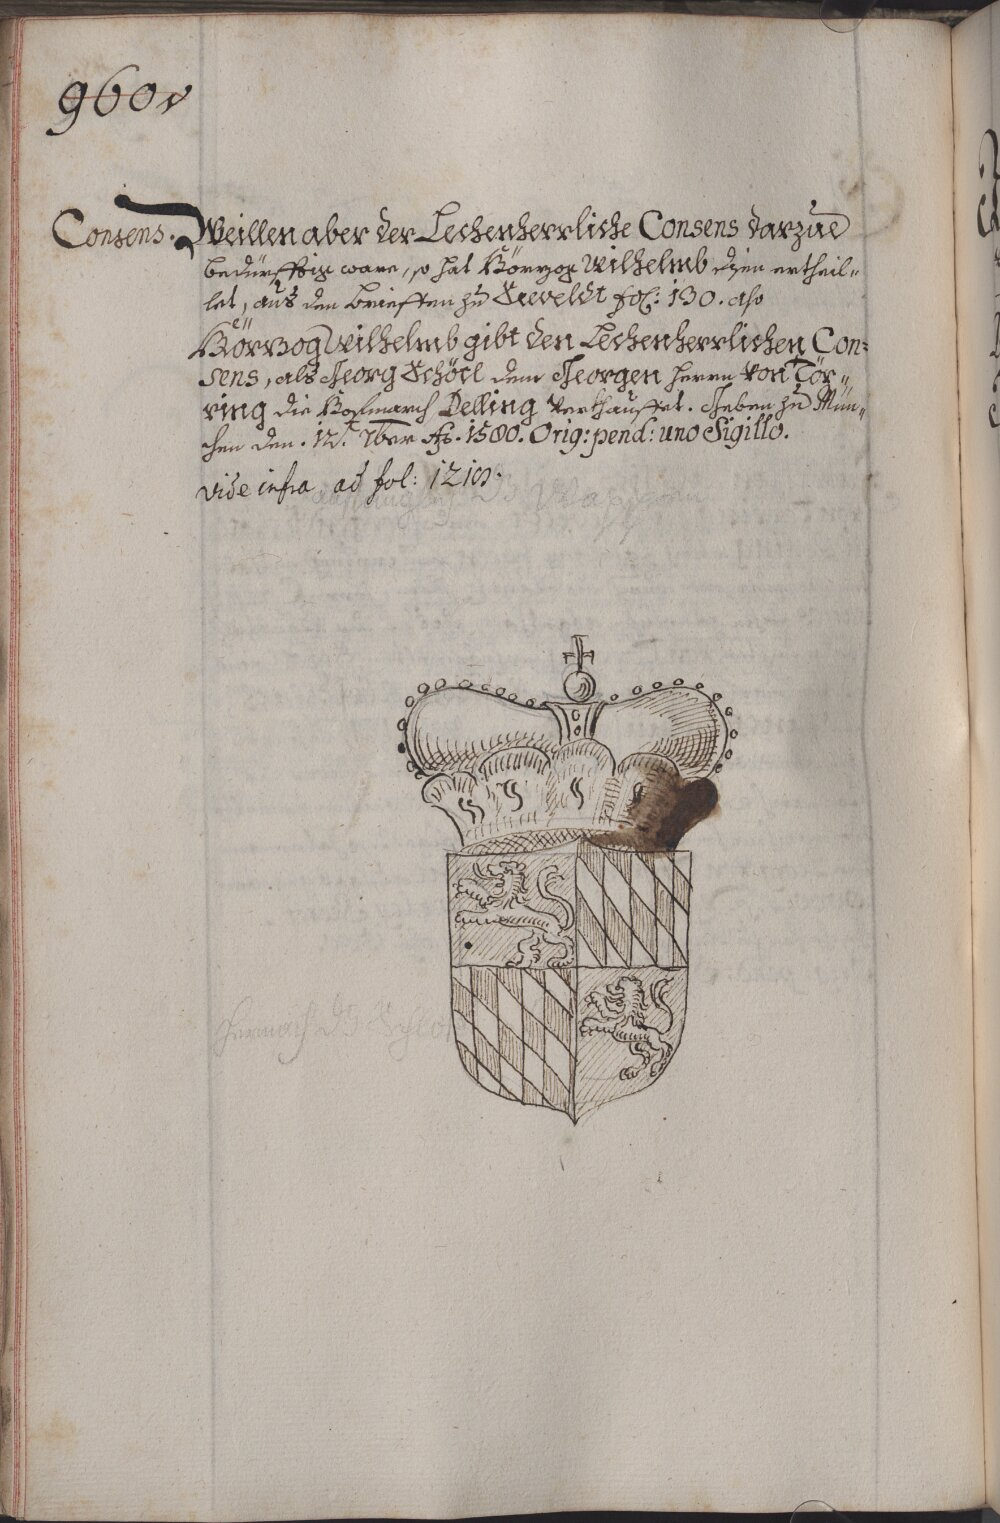 960v
Consens.
Weillen aber der Lechenherrliche Consens darzue
bedürfftig ware, so hat Hörzog Wilhelmb den ertheil-
let, aus den brieffen zu Seeveldt fol: 130. also
Hörzog Wilhelmb gibt den Lechenherrlichen Con-
sens, als Georg Schöttl dem Georgen herrn von Tör-
ring die Hofmarch Delling verkhauffet. Geben zu Mün-
chen den . 12. 7ber Ao. 1580. Orig: pend: uno Sigillo.
vide infra ad fol: 1210.